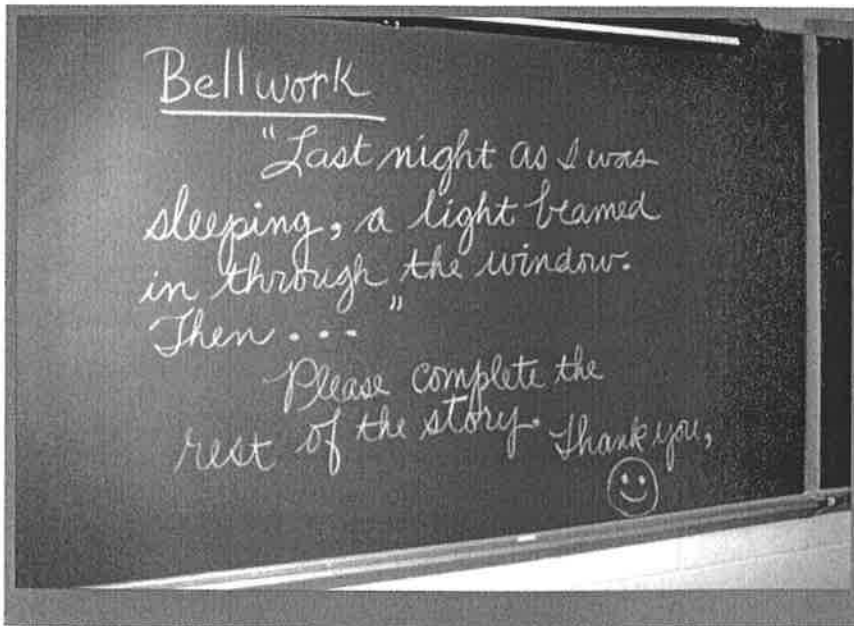 Bellwork
"Last night as I was
sleeping, a light beamed
in through the window.
Then . . . "
Please complete the
rest of the story. Thank you,